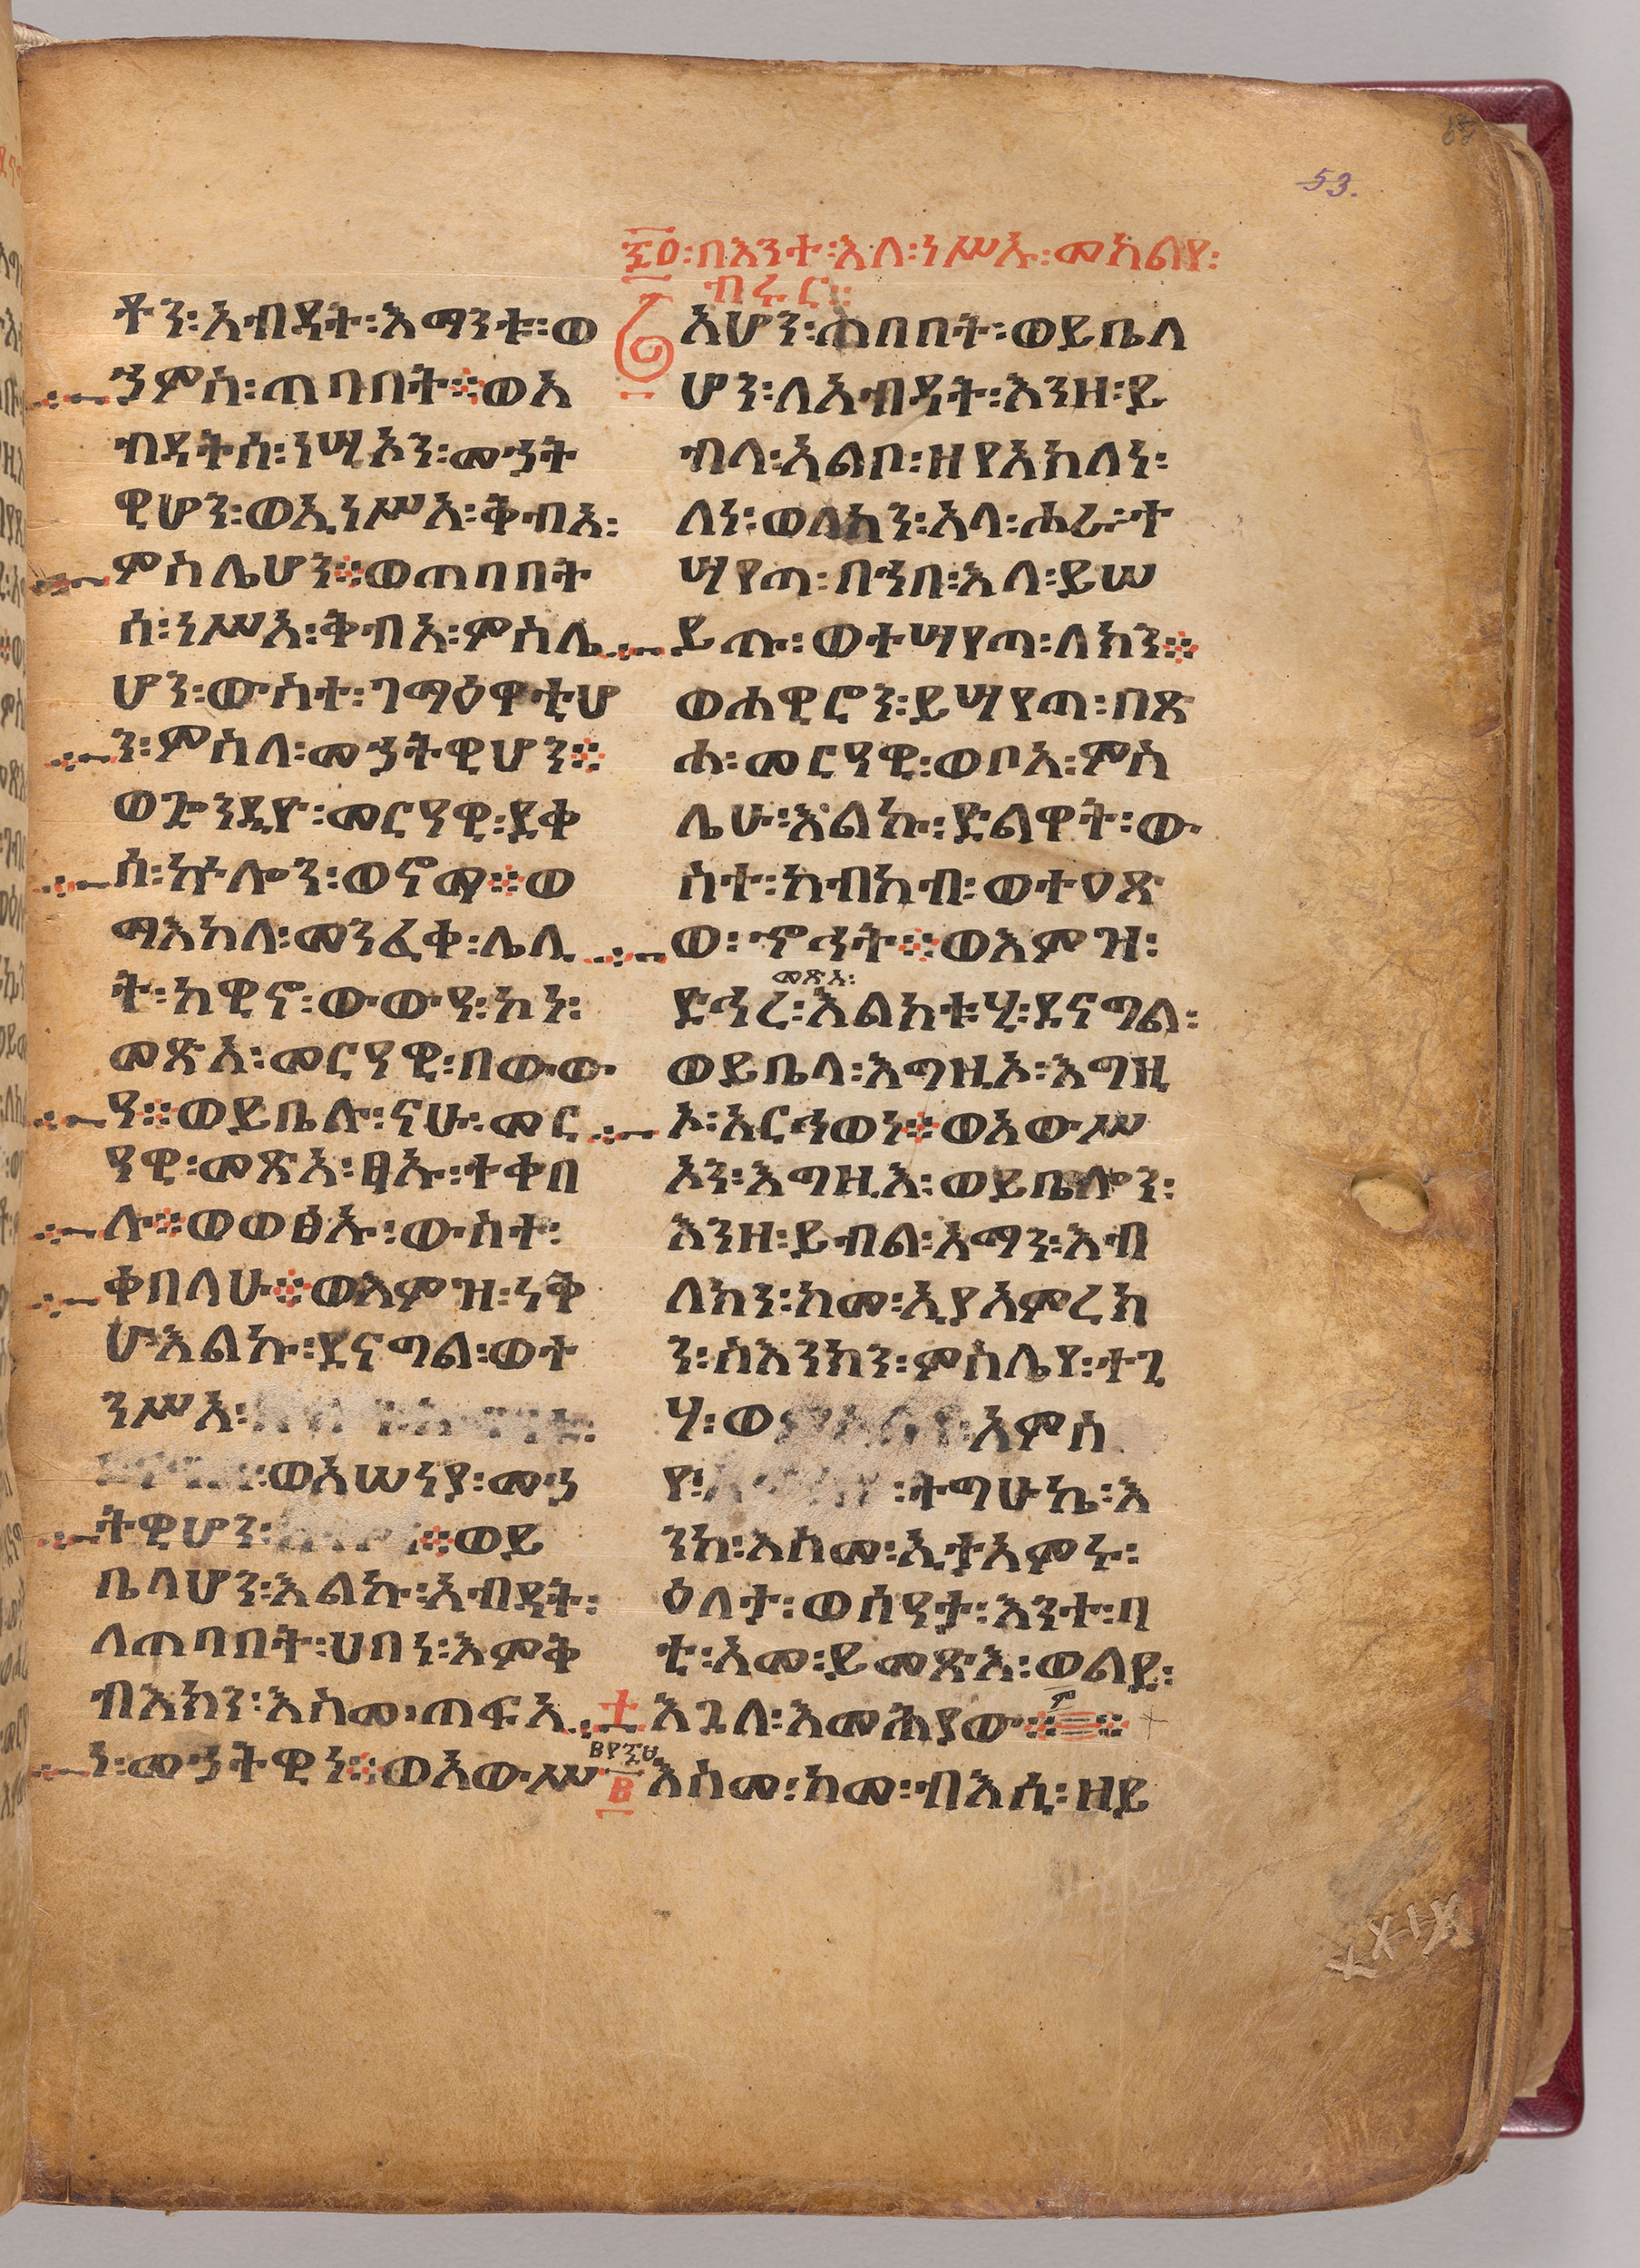 53.
፷ዐ፡በእንተ፡እለ፡ነሥኡ፡መክልየ፡
ብሩር፡፡
ቶን፡አብዳት፡እማንቱ፡ወ
ኃምስ፡ጠባበት፨ወአ
ብዳትሰ፡ነሢኦን፡መኃት
ዊሆን፡ወኢነሥአ፡ቅብአ፡
ምስሌሆን፨ወጠባበት
ሰ፡ነሥአ፡ቅብአ፡ምስሌ
ሆን፡ውስተ፡ገማዕዋቲሆ
ን፡ምስለ፡መኃትዊሆን፨
ወጐንዲዮ፡መርዓዊ፡ደቀ
ሰ፡ኵሎን፡ወኖማ፨ወ
ማእከለ፡መንፈቀ፡ሌሊ
ት፡ከዊኖ፡ውውዓ፡ኮነ፡
መጽአ፡መርዓዊ፡በውው
ዓ፨ወይቤሉ፡ናሁ፡መር
ዓዊ፡መጽአ፡ፃኡ፡ተቀበ
ሉ፨ወወፅኡ፡ውስተ፡
ቀበላሁ፨ወእምዝ፡ነቅ
ሃ፡እልኩ፡ደናግል፡ወተ
ንሥአ፡
ወአሠነያ፡መኃ
ትዊሆን፡ ፨ወይ
ቤላሆን፡እልኩ፡አብዳት፡
ለጠባበት፡ሀበነ፡እምቅ
ብእክን፡እስመ፡ጠፍአ
ነ፡መኃትዊነ፨ወአውሥ
አሆን፡ጠበበት፡ወይቤላ
ሆን፡ለአብዳት፡እንዘ፡ይ
ብላ፡አልቦ፡ዘየአክለነ፡
ለነ፡ወለክን፡አላ፡ሑራ፡ተ
ሣየጣ፡በኀበ፡እለ፡ይሠ
ይጡ፡ወተሣየጣ፡ለክን፨
ወሐዊሮን፡ይሣየጣ፡በጽ
ሐ፡መርዓዊ፡ወቦአ፡ምስ
ሌሁ፡እልኩ፡ድልዋት፡ው
ስተ፡ከብካብ፡ወተዐጽ
ወ፡ኆኅት፨ወእምዝ፡
መጽአ፡
ድኅረ፡እልክቱሂ፡ደናግል፡
ወይቤላ፡እግዚኦ፡እግዚ
ኦ፡አርኅወነ፨ወአውሥ
አን፡እግዚእ፡ወይቤሎን፡
እንዘ፡ይብል፡አማን፡እብ
ለክን፡ከመ፡ኢያአምረክ
ን፡ስእንክን፡ምስሌየ፡ተጊ
ሃ፡ወ አምሰ
የ፡ ፡ትግሁኬ፡እ
ንከ፡እስመ፡ኢታአምሩ፡
ዕለታ፡ወሰዓታ፡እንተ፡ባ
ቲ፡አመ፡ይመጽእ፡ወልደ፡
እጓለ፡እመሕያው፨
እስመ፡ከመ፡ብእሲ፡ዘይ
XXIX